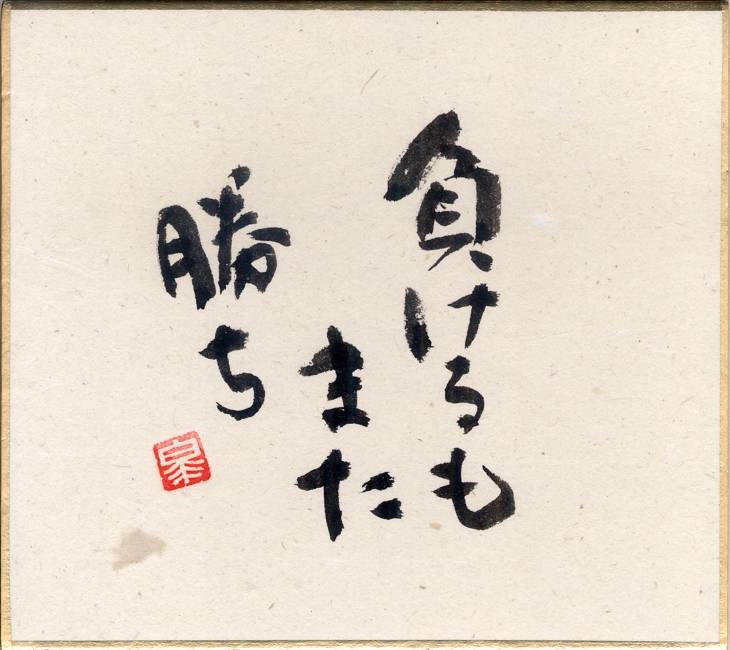 負けるも
また
勝ち